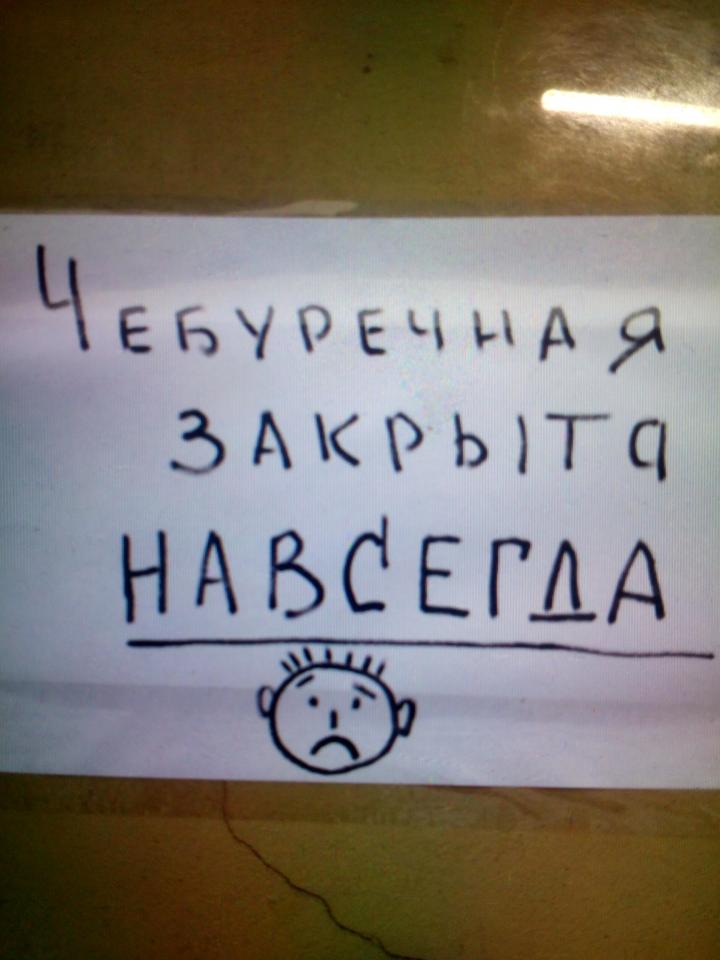 ЧЕБУРЕЧНАЯ
ЗАКРЫТа
НАВСЕГДА